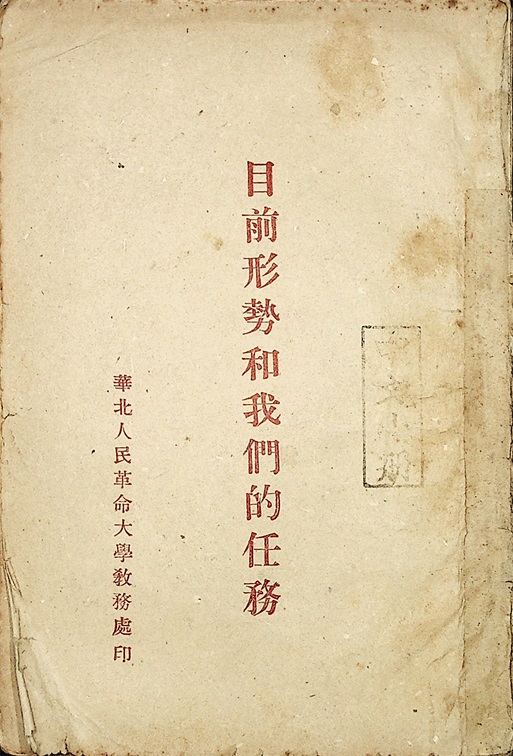 目前形勢和我們的任務
華北人民革命大學教務處印